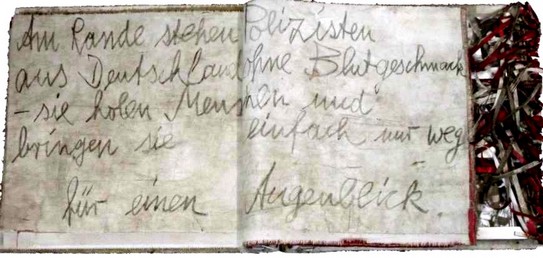 Am Rande stehen Polizisten
aus Deutschland ohne Blutgeschmack
– sie holen Menschen und
bringen sie einfach nur weg
für einen Augenblick.